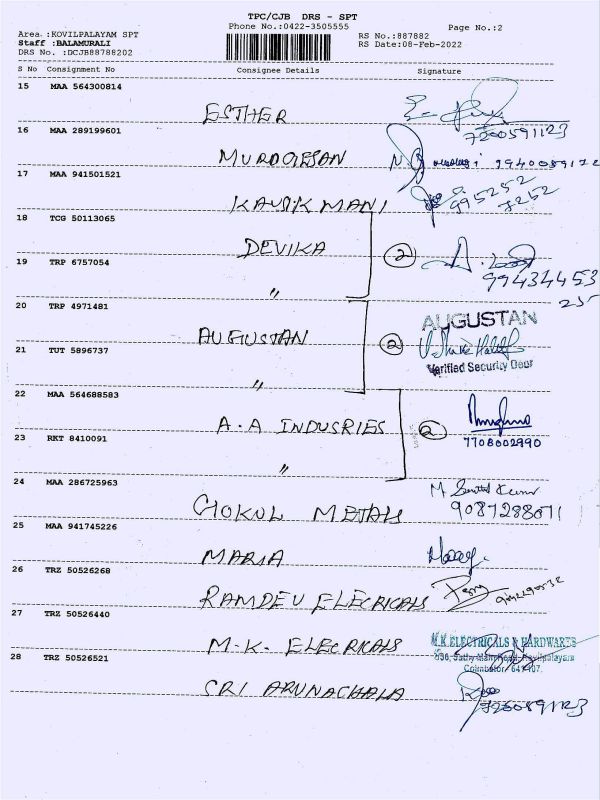 TPC/CJB DRS - SPT
Phone No.:0422-3505555
Page No.:2
Area :KOVILPALAYAM SPT
RS No.:887882
Staff :BALAMURALI
RS Date:08-Feb-2022
DRS No. :DCJB88788202
S No Consignment No Consignee Details Signature
15 MAA 564300814
ESTHER
7200591123
16 MAA 289199601
MURUGESAN
17 MAA 941501521
KAUSIK MANI
995252
7252
18 TCG 50113065
DEVIKA 2
19 TRP 6757054
99434453
25
"
20 TRP 4971481
AUGUSTAN 2
AUGUSTAN
21 TUT 5896737
Verified Security Dept
"
22 MAA 564688583
A.A INDUSRIES 2
7708002990
23 RKT 8410091
"
24 MAA 286725963
GOKUL METALS
M Senthil Kumar
9087288071
25 MAA 941745226
MARIA
26 TRZ 50526268
RAMDEV ELECRICALS
27 TRZ 50526440
M.K. ELECRICALS
M.K.ELECTRICALS & HARDWARES
Coimbatore - 641107.
28 TRZ 50526521
SRI ARUNACHALA
7200591123